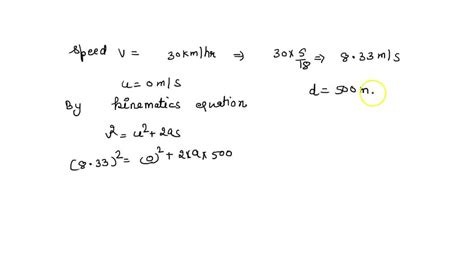 Speed V = 30km/hr ⇒ 30 × 5/18 ⇒ 8.33 m/s
u = 0 m/s
d = 500 m.
By kinematics equation
v² = u² + 2as
(8.33)² = (0)² + 2×a×500